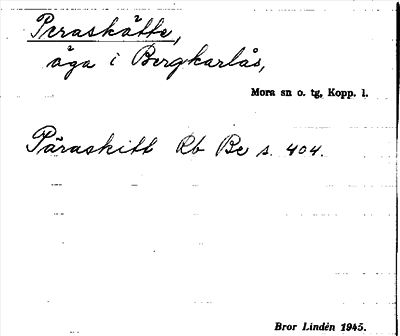 Peraskätte,
äga i Bergkarlås,
Mora sn o. tg, Kopp. l.
Päraskitt Rb Be s. 404.
Bror Lindén 1945.